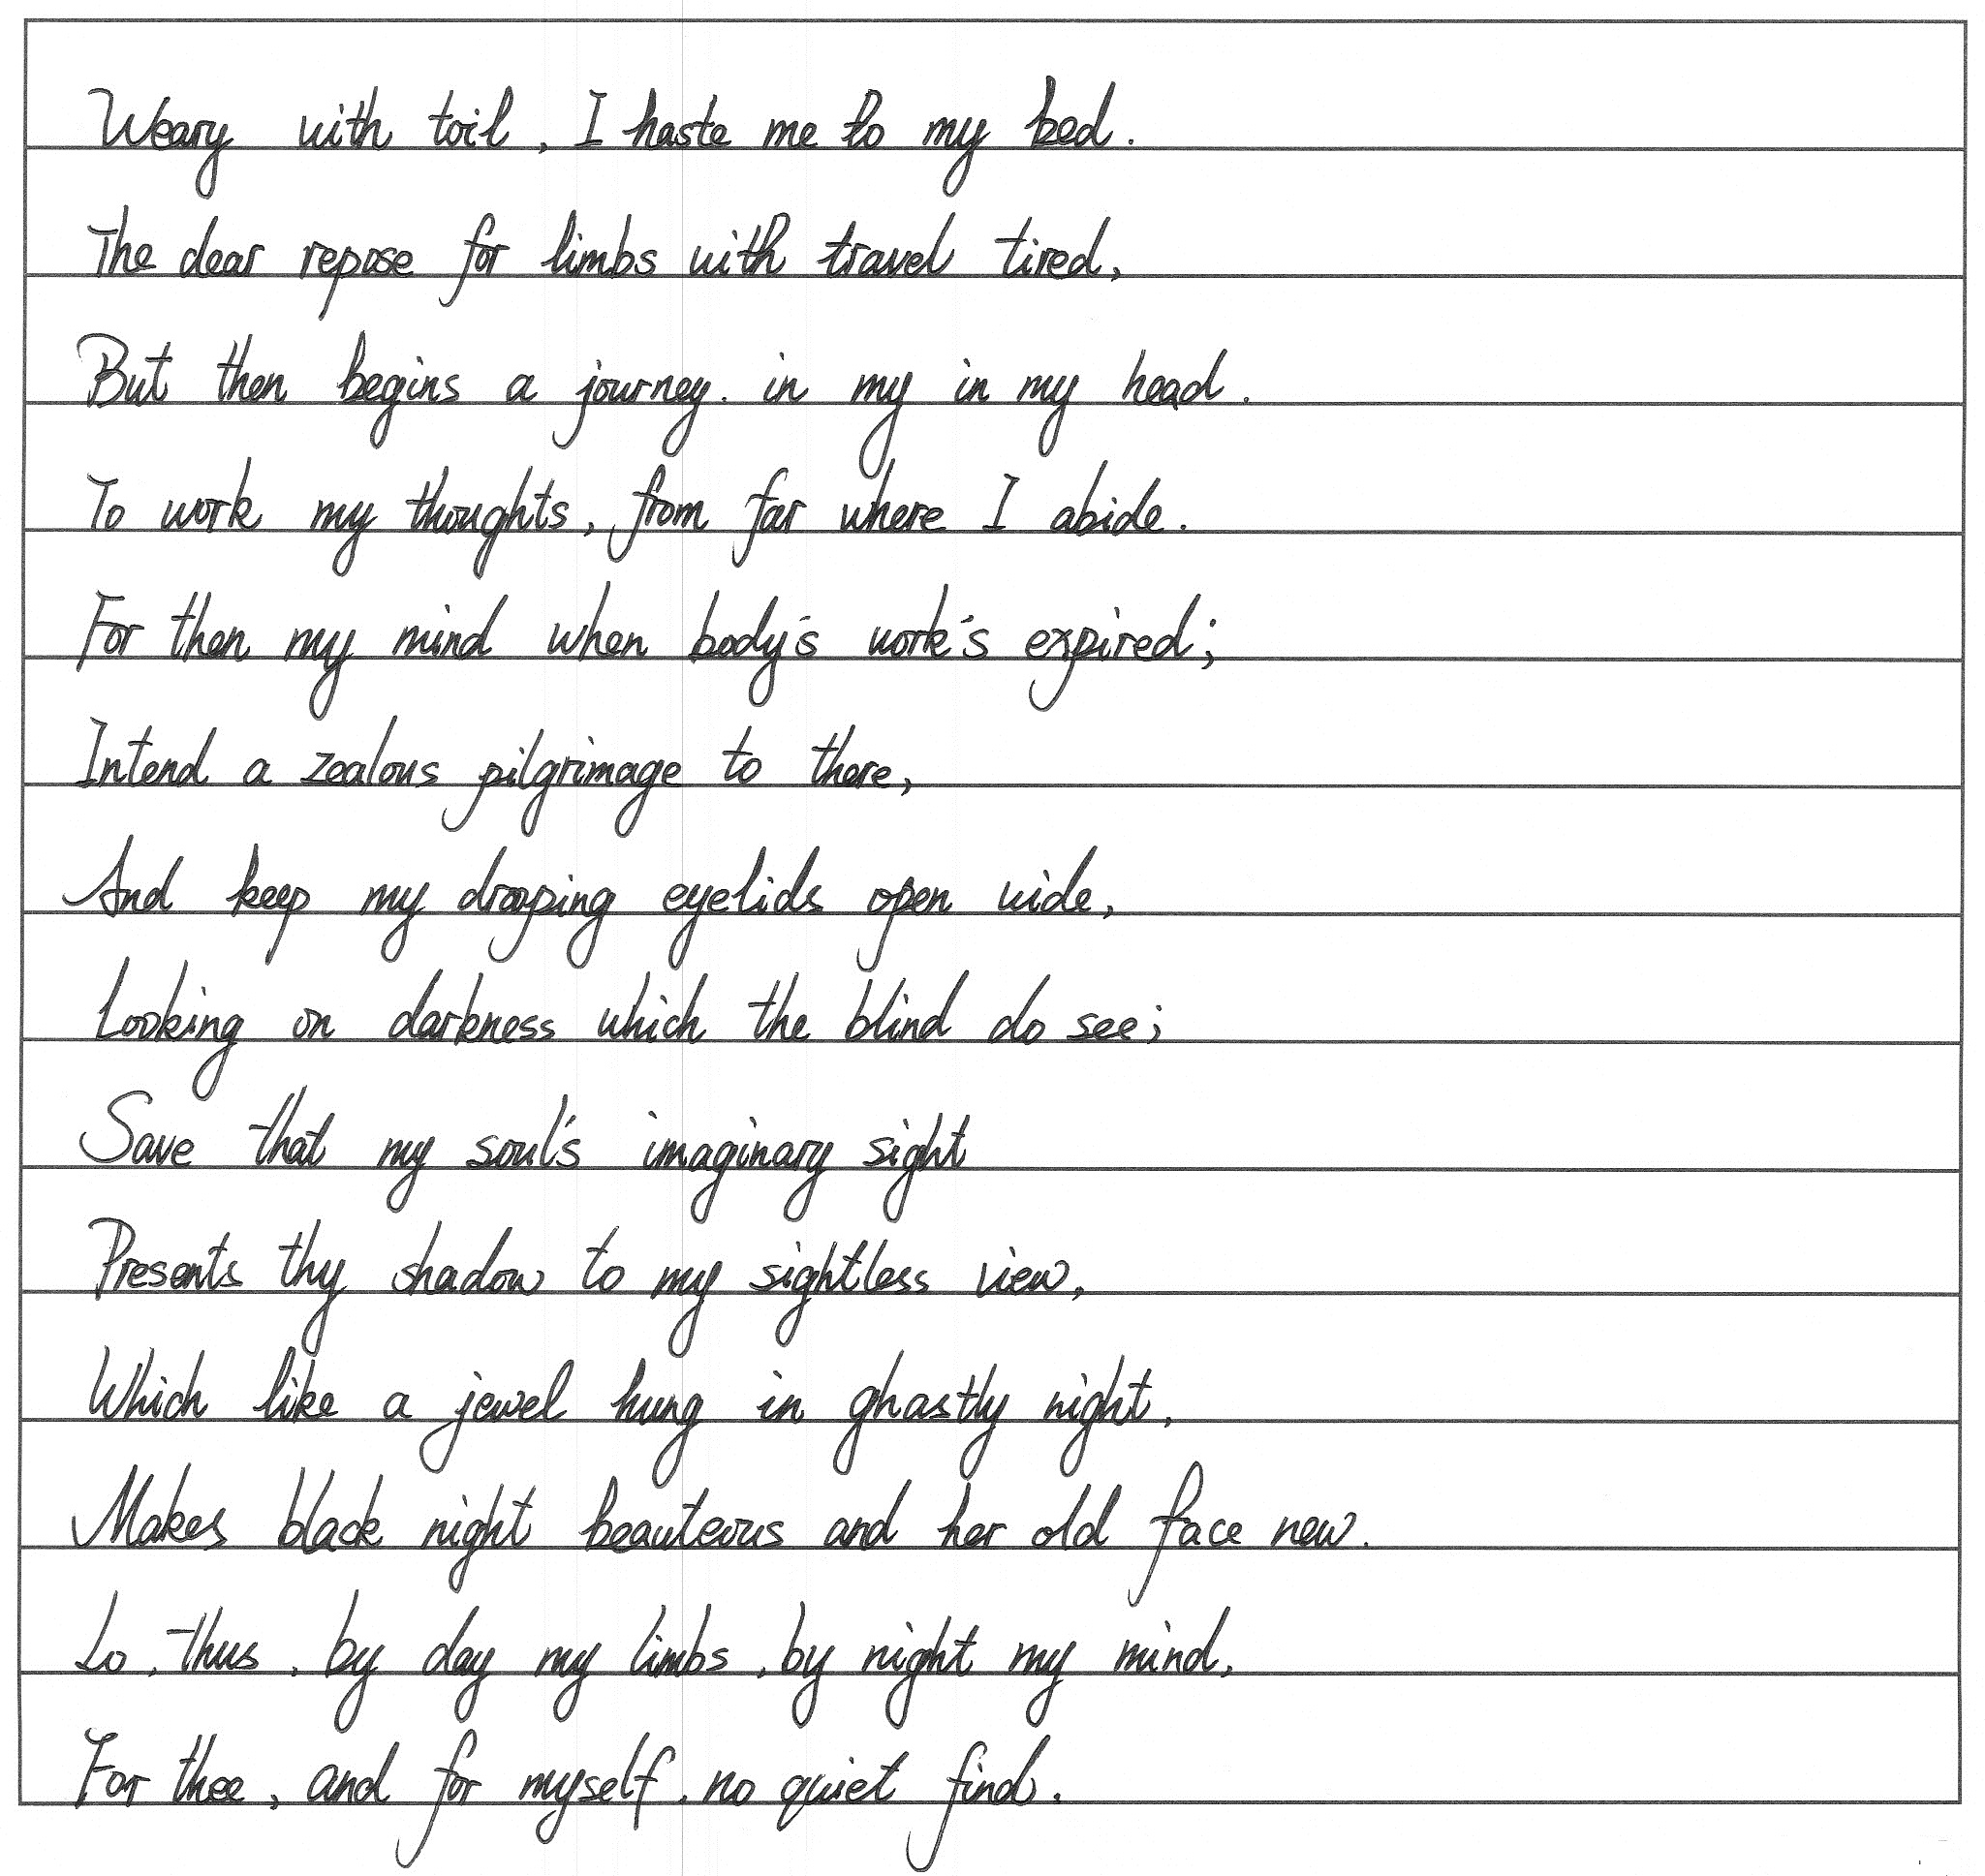 Weary with toil, I haste me to my bed.
The dear repose for limbs with travel tired,
But then begins a journey. in my in my head.
To work my thoughts, from far where I abide.
For then my mind when body's work's expired;
Intend a zealous pilgrimage to there,
And keep my drooping eyelids open wide,
Looking on darkness which the blind do see;
Save that my soul's imaginary sight
Presents thy shadow to my sightless view,
Which like a jewel hung in ghastly night,
Makes black night beauteous and her old face new.
Lo, thus, by day my limbs, by night my mind,
For thee, and for myself, no quiet find.